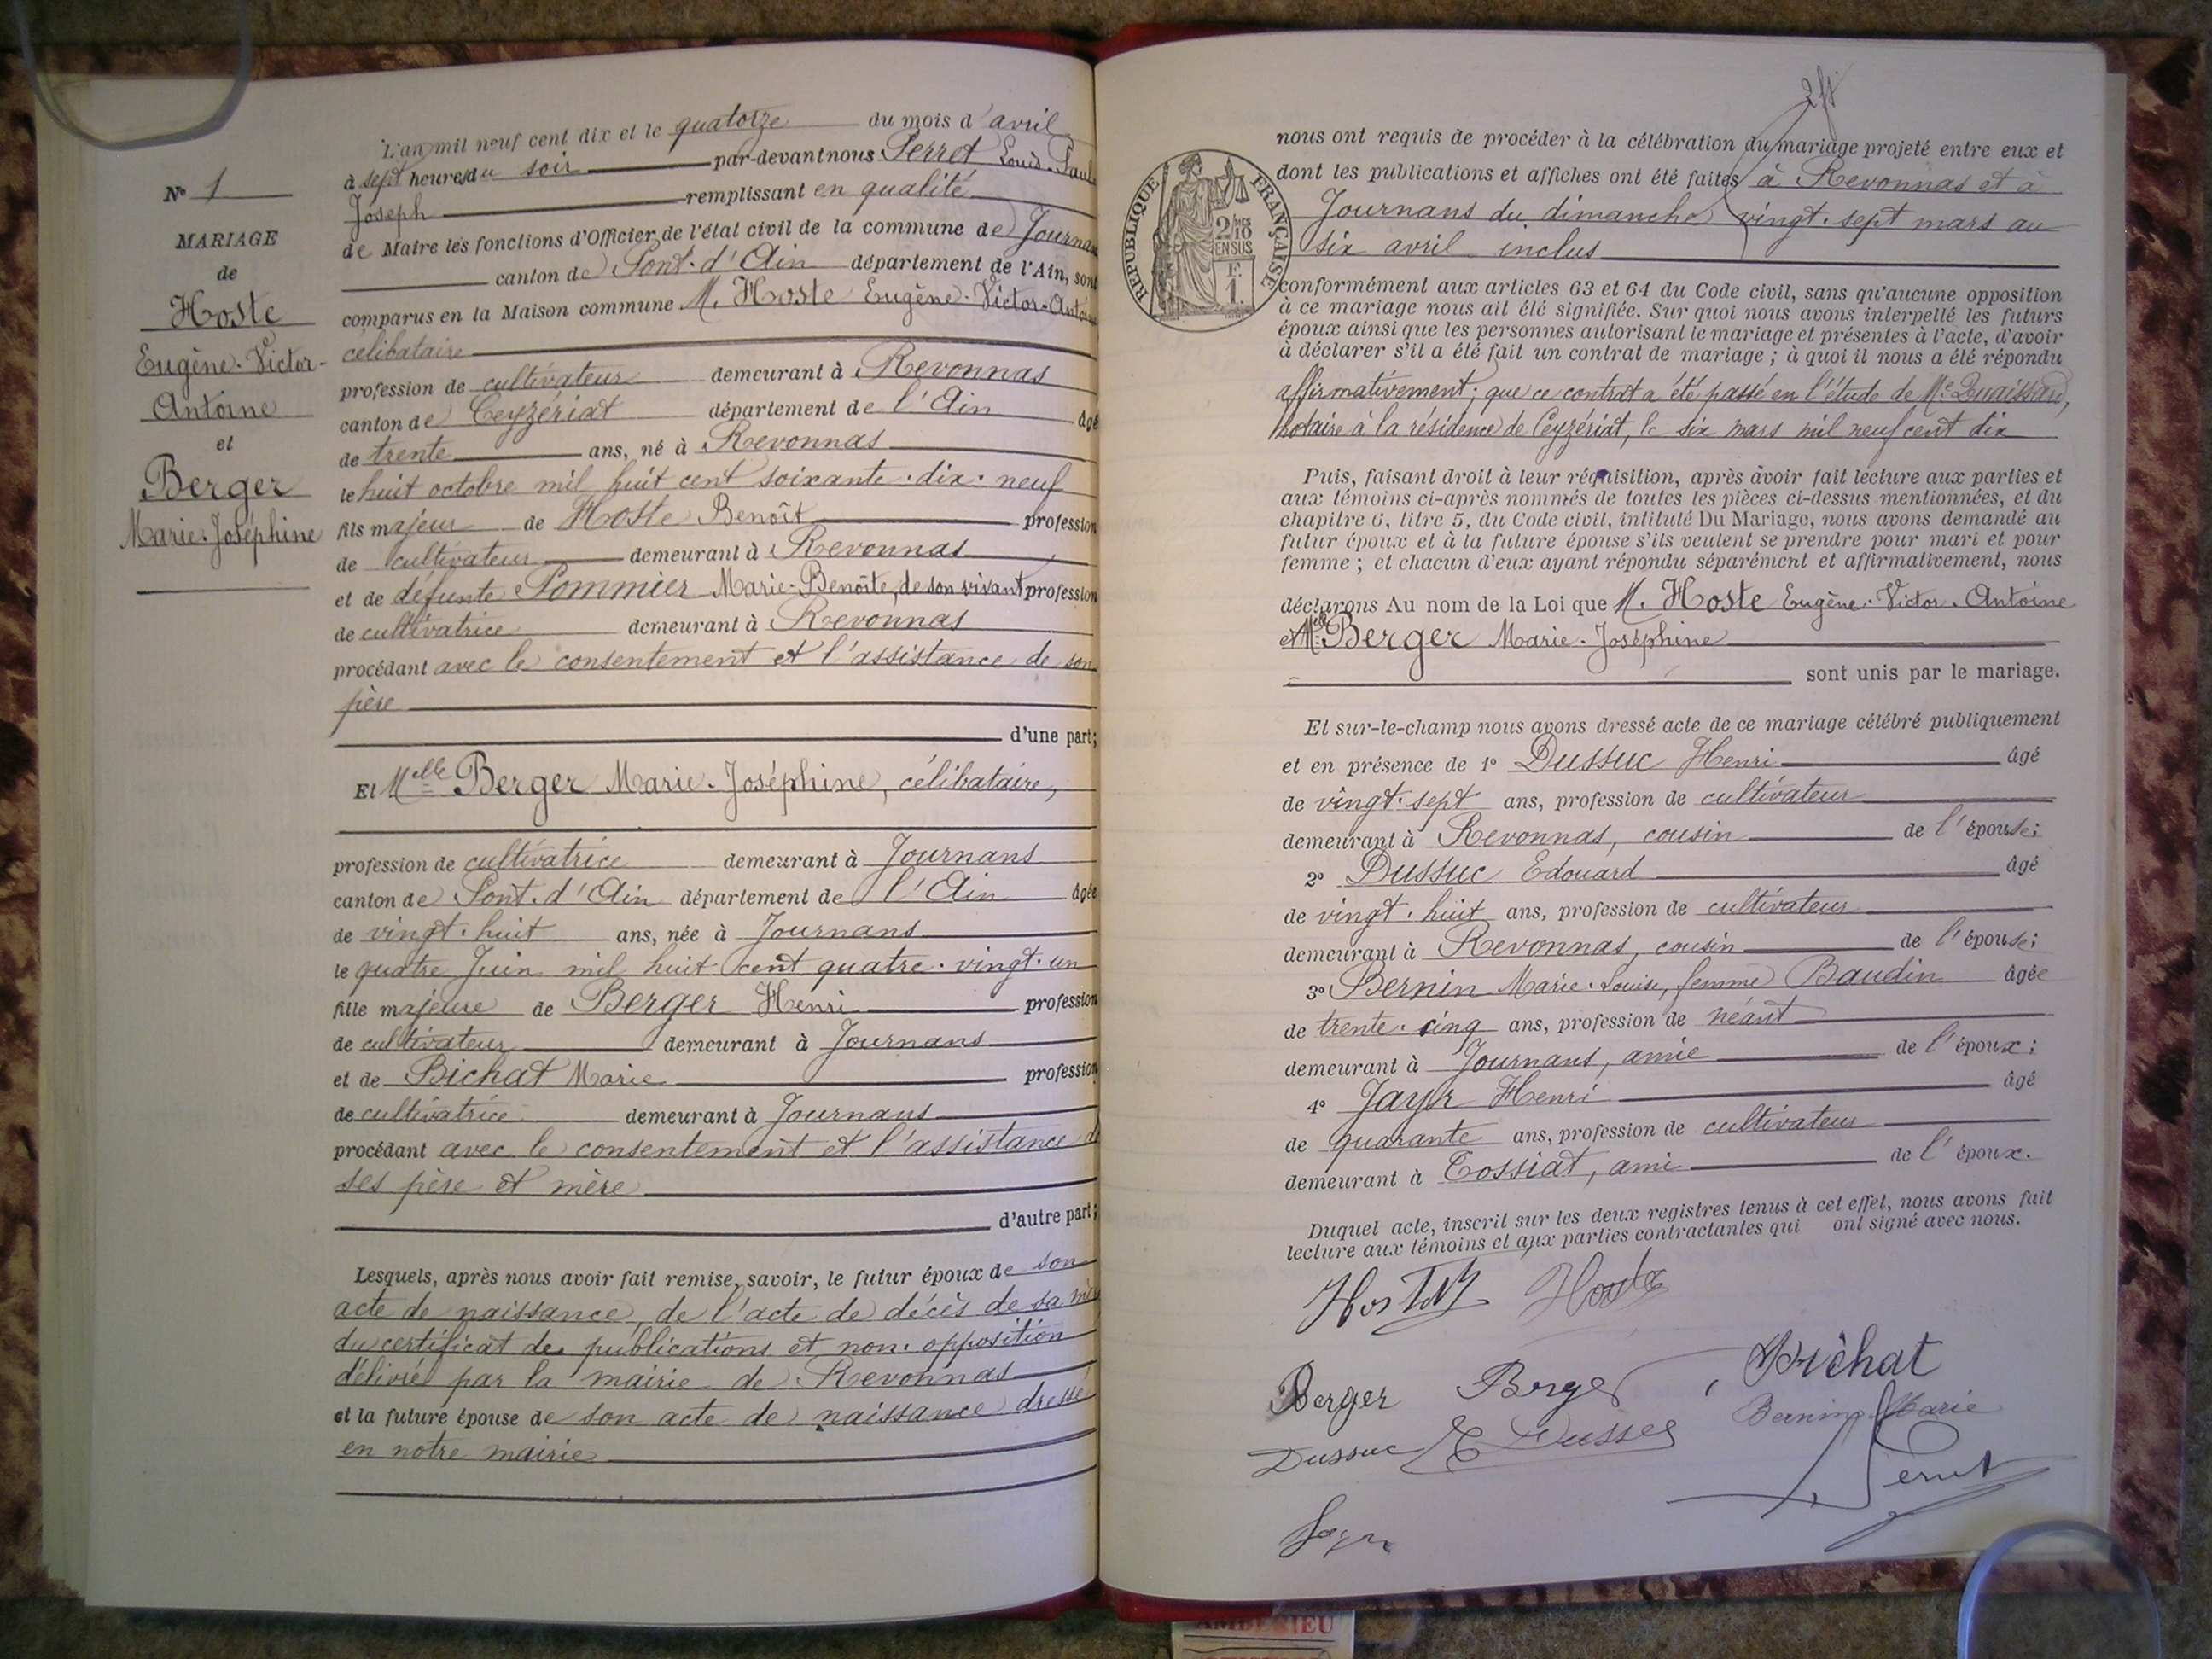 N° 1
MARIAGE
de
Hoste
Eugène-Victor-
Antoine
et
Berger
Marie-Joséphine
L'an mil neuf cent dix et le quatorze du mois d'avril
à sept heures du soir par-devant nous Perret Louis-Paul
Joseph remplissant en qualité
de Maire les fonctions d'Officier de l'état civil de la commune de Journans
canton de Pont-d'Ain département de l'Ain, sont
comparus en la Maison commune M. Hoste Eugène-Victor-Antoine
célibataire
profession de cultivateur demeurant à Revonnas
canton de Ceyzériat département de l'Ain âgé
de trente ans, né à Revonnas
le huit octobre mil huit cent soixante-dix-neuf
fils majeur de Hoste Benoît profession
de cultivateur demeurant à Revonnas
et de défunte Pommier Marie-Benoîte, de son vivant profession
de cultivatrice demeurant à Revonnas
procédant avec le consentement et l'assistance de son
père
d'une part;
Et Melle Berger Marie-Joséphine, célibataire,
profession de cultivatrice demeurant à Journans
canton de Pont-d'Ain département de l'Ain âgée
de vingt-huit ans, née à Journans
le quatre Juin mil huit cent quatre-vingt-un
fille majeure de Berger Henri profession
de cultivateur demeurant à Journans
et de Bichat Marie profession
de cultivatrice demeurant à Journans
procédant avec le consentement et l'assistance de
ses père et mère
d'autre part;
Lesquels, après nous avoir fait remise, savoir, le futur époux de son
acte de naissance, de l'acte de décès de sa mère
du certificat de publications et non-opposition
délivré par la mairie de Revonnas
et la future épouse de son acte de naissance dressé
en notre mairie
RÉPUBLIQUE FRANÇAISE
2/10
EN SUS
F.
1.
nous ont requis de procéder à la célébration du mariage projeté entre eux et
dont les publications et affiches ont été faites à Revonnas et à
Journans du dimanche vingt-sept mars au
six avril inclus
conformément aux articles 63 et 64 du Code civil, sans qu'aucune opposition
à ce mariage nous ait été signifiée. Sur quoi nous avons interpellé les futurs
époux ainsi que les personnes autorisant le mariage et présentes à l'acte, d'avoir
à déclarer s'il a été fait un contrat de mariage; à quoi il nous a été répondu
affirmativement; que ce contrat a été passé en l'étude de Me
notaire à la résidence de Ceyzériat, le six mars mil neuf cent dix
Puis, faisant droit à leur réquisition, après avoir fait lecture aux parties et
aux témoins ci-après nommés de toutes les pièces ci-dessus mentionnées, et du
chapitre 6, titre 5, du Code civil, intitulé Du Mariage, nous avons demandé au
futur époux et à la future épouse s'ils veulent se prendre pour mari et pour
femme; et chacun d'eux ayant répondu séparément et affirmativement, nous
déclarons Au nom de la Loi que M. Hoste Eugène-Victor-Antoine
et Melle Berger Marie-Joséphine
sont unis par le mariage.
Et sur-le-champ nous avons dressé acte de ce mariage célébré publiquement
et en présence de 1° Dussuc Henri âgé
de vingt-sept ans, profession de cultivateur
demeurant à Revonnas, cousin de l'épouse;
2° Dussuc Edouard âgé
de vingt-huit ans, profession de cultivateur
demeurant à Revonnas, cousin de l'épouse;
3° Bernin Marie-Louise, femme Baudin âgée
de trente-cinq ans, profession de néant
demeurant à Journans, amie de l'époux;
4° Jayr Henri âgé
de quarante ans, profession de cultivateur
demeurant à Tossiat, ami de l'époux.
Duquel acte, inscrit sur les deux registres tenus à cet effet, nous avons fait
lecture aux témoins et aux parties contractantes qui ont signé avec nous.
Hoste Hoste
Berger Berger Bichat
Bernin Marie
Dussuc E Dussuc
Perret
Jayr